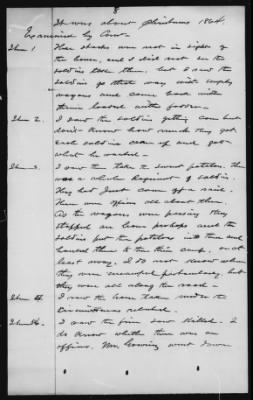 8
It was about Christmas 1864.
Examined by Com—
Item 1 The stacks were not in sight of
the house, and I did not see the
soldiers take them, but I saw the
soldiers go that way with empty
wagons and come back with
them loaded with fodder—
Item 2. I saw the soldiers getting corn but
don't know how much they got.
Each soldier came up and got
what he wanted—
Item 3. I saw them take the sweet potatoes. There
was a whole Regiment of soldiers.
They had just come off a raid.
There were officers all about there.
As the wagons were passing they
stopped an hour perhaps and the
soldiers put the potatoes into them and
hauled them to the camp, or at
least away. I do not know where
they were encamped particularly but
they were all along the road—
Item 4. I saw the horse taken under the
circumstances related.
Item I saw the fine sow killed. I
do know whether there was an
officer. Mr. went down